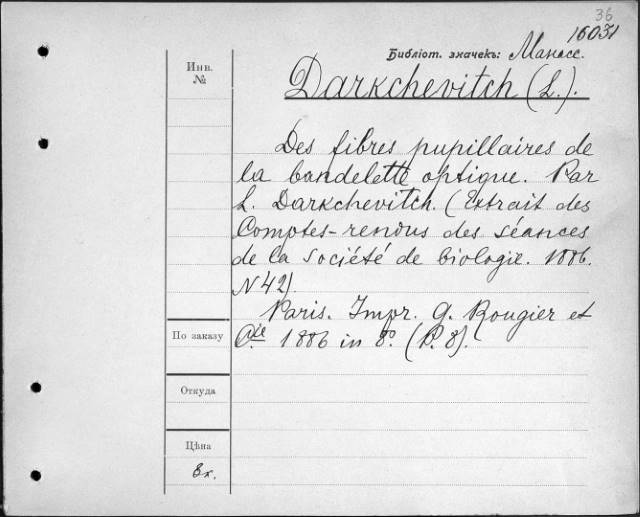 36
16031
Библіот. значекъ: Манасс.
Инв.
№
Darkchevitch (L.).
Des fibres pupillaires de
la bandelette optique. Par
L. Darkchevitch. (Extrait des
Comptes-rendus des séances
de la Société de biologie. 1886.
N 42).
Paris. Impr. G. Rougier et
Cie. 1886 in 8º. (P. 8).
По заказу
Откуда
Цѣна